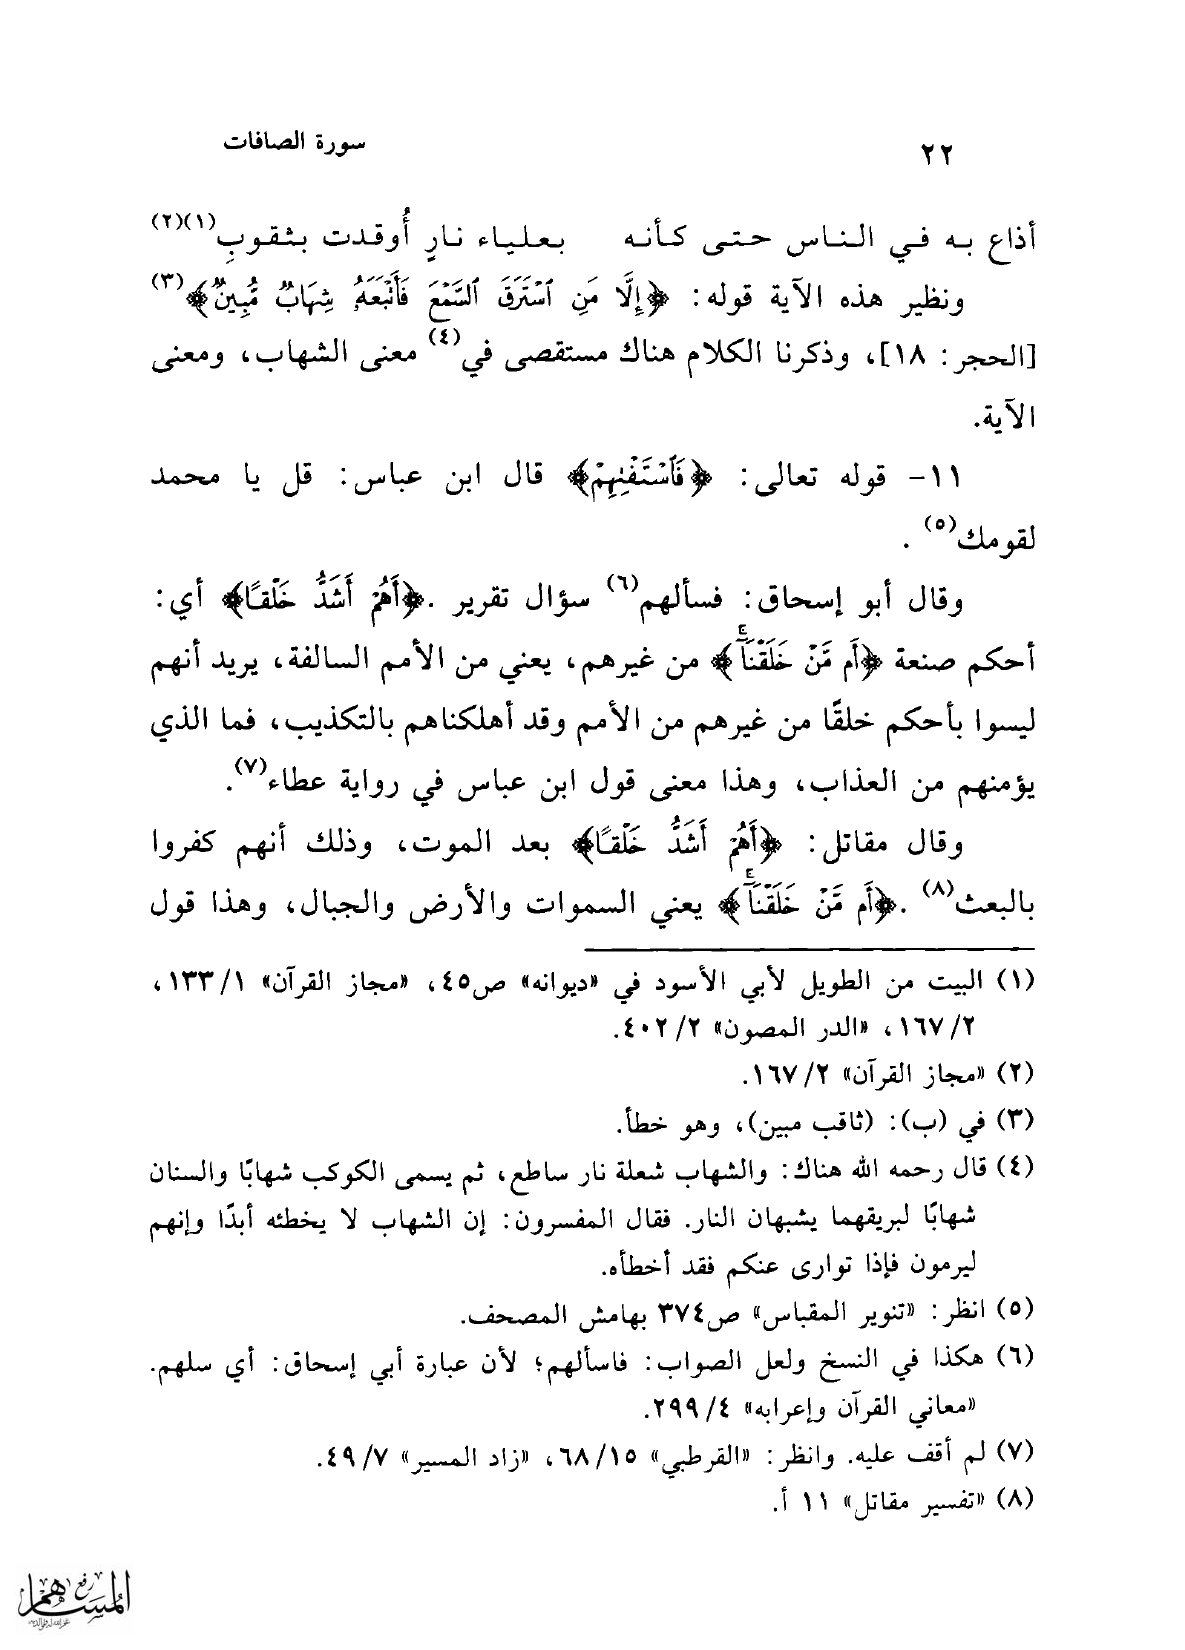 ٢٢
سورة الصافات
أذاع به في الناس حتى كأنه بعلياء نارٍ أُوقدت بثقوبِ(١)(٢)
ونظير هذه الآية قوله: ﴿إِلَّا مَنِ ٱسْتَرَقَ ٱلسَّمْعَ فَأَتْبَعَهُۥ شِهَابٌ مُّبِينٌ﴾(٣)
[الحجر: ١٨]، وذكرنا الكلام هناك مستقصى في(٤) معنى الشهاب، ومعنى
الآية.
١١- قوله تعالى: ﴿فَٱسْتَفْتِهِمْ﴾ قال ابن عباس: قل يا محمد
لقومك(٥) .
وقال أبو إسحاق: فسألهم(٦) سؤال تقرير .﴿أَهُمْ أَشَدُّ خَلْقًا﴾ أي:
أحكم صنعة ﴿أَم مَّنْ خَلَقْنَآ ۚ﴾ من غيرهم، يعني من الأمم السالفة، يريد أنهم
ليسوا بأحكم خلقًا من غيرهم من الأمم وقد أهلكناهم بالتكذيب، فما الذي
يؤمنهم من العذاب، وهذا معنى قول ابن عباس في رواية عطاء(٧).
وقال مقاتل: ﴿أَهُمْ أَشَدُّ خَلْقًا﴾ بعد الموت، وذلك أنهم كفروا
بالبعث(٨) .﴿أَم مَّنْ خَلَقْنَآ ۚ﴾ يعني السموات والأرض والجبال، وهذا قول
(١) البيت من الطويل لأبي الأسود في «ديوانه» ص٤٥، «مجاز القرآن» ١/ ١٣٣،
٢/ ١٦٧، «الدر المصون» ٢/ ٤٠٢.
(٢) «مجاز القرآن» ٢/ ١٦٧.
(٣) في (ب): (ثاقب مبين)، وهو خطأ.
(٤) قال رحمه الله هناك: والشهاب شعلة نار ساطع، ثم يسمى الكوكب شهابًا والسنان
شهابًا لبريقهما يشبهان النار. فقال المفسرون: إن الشهاب لا يخطئه أبدًا وإنهم
ليرمون فإذا توارى عنكم فقد أخطأه.
(٥) انظر: «تنوير المقباس» ص٣٧٤ بهامش المصحف.
(٦) هكذا في النسخ ولعل الصواب: فاسألهم؛ لأن عبارة أبي إسحاق: أي سلهم.
«معاني القرآن وإعرابه» ٤/ ٢٩٩.
(٧) لم أقف عليه. وانظر: «القرطبي» ١٥/ ٦٨، «زاد المسير» ٧/ ٤٩.
(٨) «تفسير مقاتل» ١١ أ.